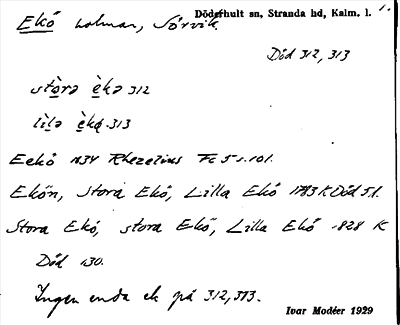 Döderhult sn, Stranda hd, Kalm. l. 1.
Ekö holmar, Sörvik.
Död 312, 313
stòrə èkə 312
lìlə èkə 313
Eekö 1634 Rhezelius Fc 5 s. 101.
Ekön, Stora Ekö, Lilla Ekö 1783 K Död 51.
Stora Ekö, stora Ekö, Lilla Ekö 1828 K
Död 130.
Ingen enda ek på 312, 313.
Ivar Modéer 1929